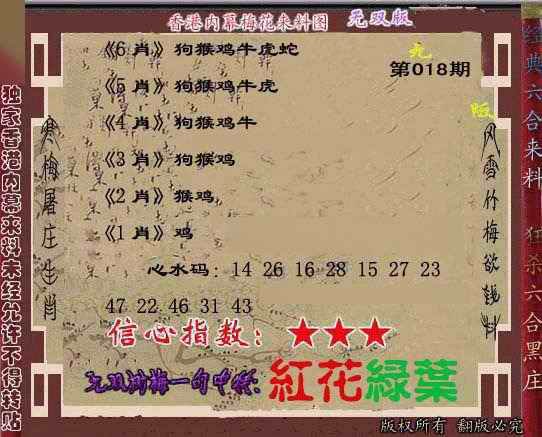 香港内幕梅花来料图 无双版
《6 肖》狗猴鸡牛虎蛇
第018期
《5 肖》狗猴鸡牛虎
《4 肖》狗猴鸡牛
《3 肖》狗猴鸡
《2 肖》猴鸡
《1 肖》鸡
心水码：14 26 16 28 15 27 23
47 22 46 31 43
信心指数：★★★
无双一句中特：紅花綠葉
版权所有 翻版必究
独家香港内幕来料未经允许不得转贴
寒梅屠庄生肖
风雪竹梅欲钱料
经典六合来料
狂杀六合黑庄